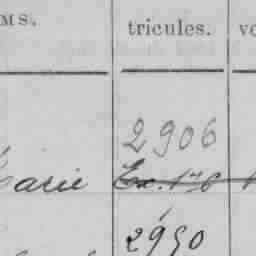 MS. tricules.
2906
Marie
2950